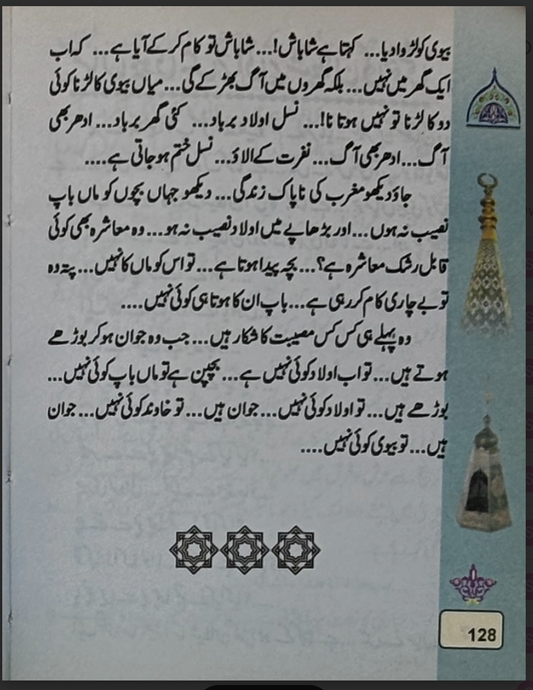 بیوی کو لڑوا دیا... کہتا ہے شاباش!... شاباش تو کام کر کے آیا ہے... کہ اب
ایک گھر میں نہیں... بلکہ گھروں میں آگ بھڑکے گی... میاں بیوی کا لڑنا کوئی
دو کا لڑنا تو نہیں ہوتا نا!... نسل اولاد برباد... کئی گھر برباد... ادھر بھی
آگ... ادھر بھی آگ... نفرت کے الاؤ... نسل ختم ہو جاتی ہے....
جاؤ دیکھو مغرب کی ناپاک زندگی... دیکھو جہاں بچوں کو ماں باپ
نصیب نہ ہوں... اور بڑھاپے میں اولاد نصیب نہ ہو... وہ معاشرہ بھی کوئی
قابل رشک معاشرہ ہے؟... بچہ پیدا ہوتا ہے... تو اس کو ماں کا نہیں... پتہ وہ
تو بے چاری کام کر رہی ہے... باپ ان کا ہوتا ہی کوئی نہیں....
وہ پہلے ہی کس کس مصیبت کا شکار ہیں... جب وہ جوان ہو کر بوڑھے
ہوتے ہیں... تو اب اولاد کوئی نہیں ہے... بچپن ہے تو ماں باپ کوئی نہیں...
بوڑھے ہیں... تو اولاد کوئی نہیں... جوان ہیں... تو خاوند کوئی نہیں... جوان
ہیں... تو بیوی کوئی نہیں....
128